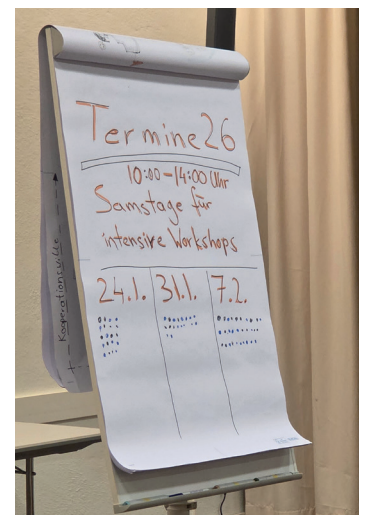 Termine 26
10:00–14:00 Uhr
Samstage für
intensive Workshops
24.1. 31.1. 7.2.
Kooperationsville